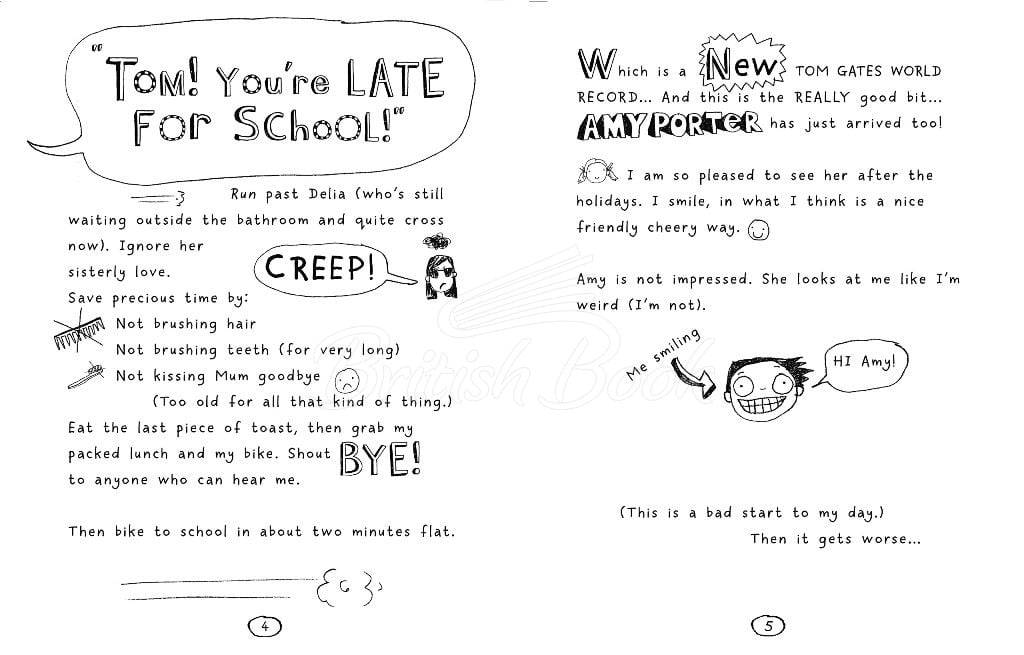 "TOM! You're LATE
For SChooL!"
Run past Delia (who's still
waiting outside the bathroom and quite cross
now). Ignore her
sisterly love.
CREEP!
Save precious time by:
Not brushing hair
Not brushing teeth (for very long)
Not kissing Mum goodbye
(Too old for all that kind of thing.)
Eat the last piece of toast, then grab my
packed lunch and my bike. Shout BYE!
to anyone who can hear me.
Then bike to school in about two minutes flat.
4
Which is a New TOM GATES WORLD
RECORD... And this is the REALLY good bit...
AMY PORTER has just arrived too!
I am so pleased to see her after the
holidays. I smile, in what I think is a nice
friendly cheery way.
Amy is not impressed. She looks at me like I'm
weird (I'm not).
Me smiling
HI Amy!
(This is a bad start to my day.)
Then it gets worse...
5
British Book